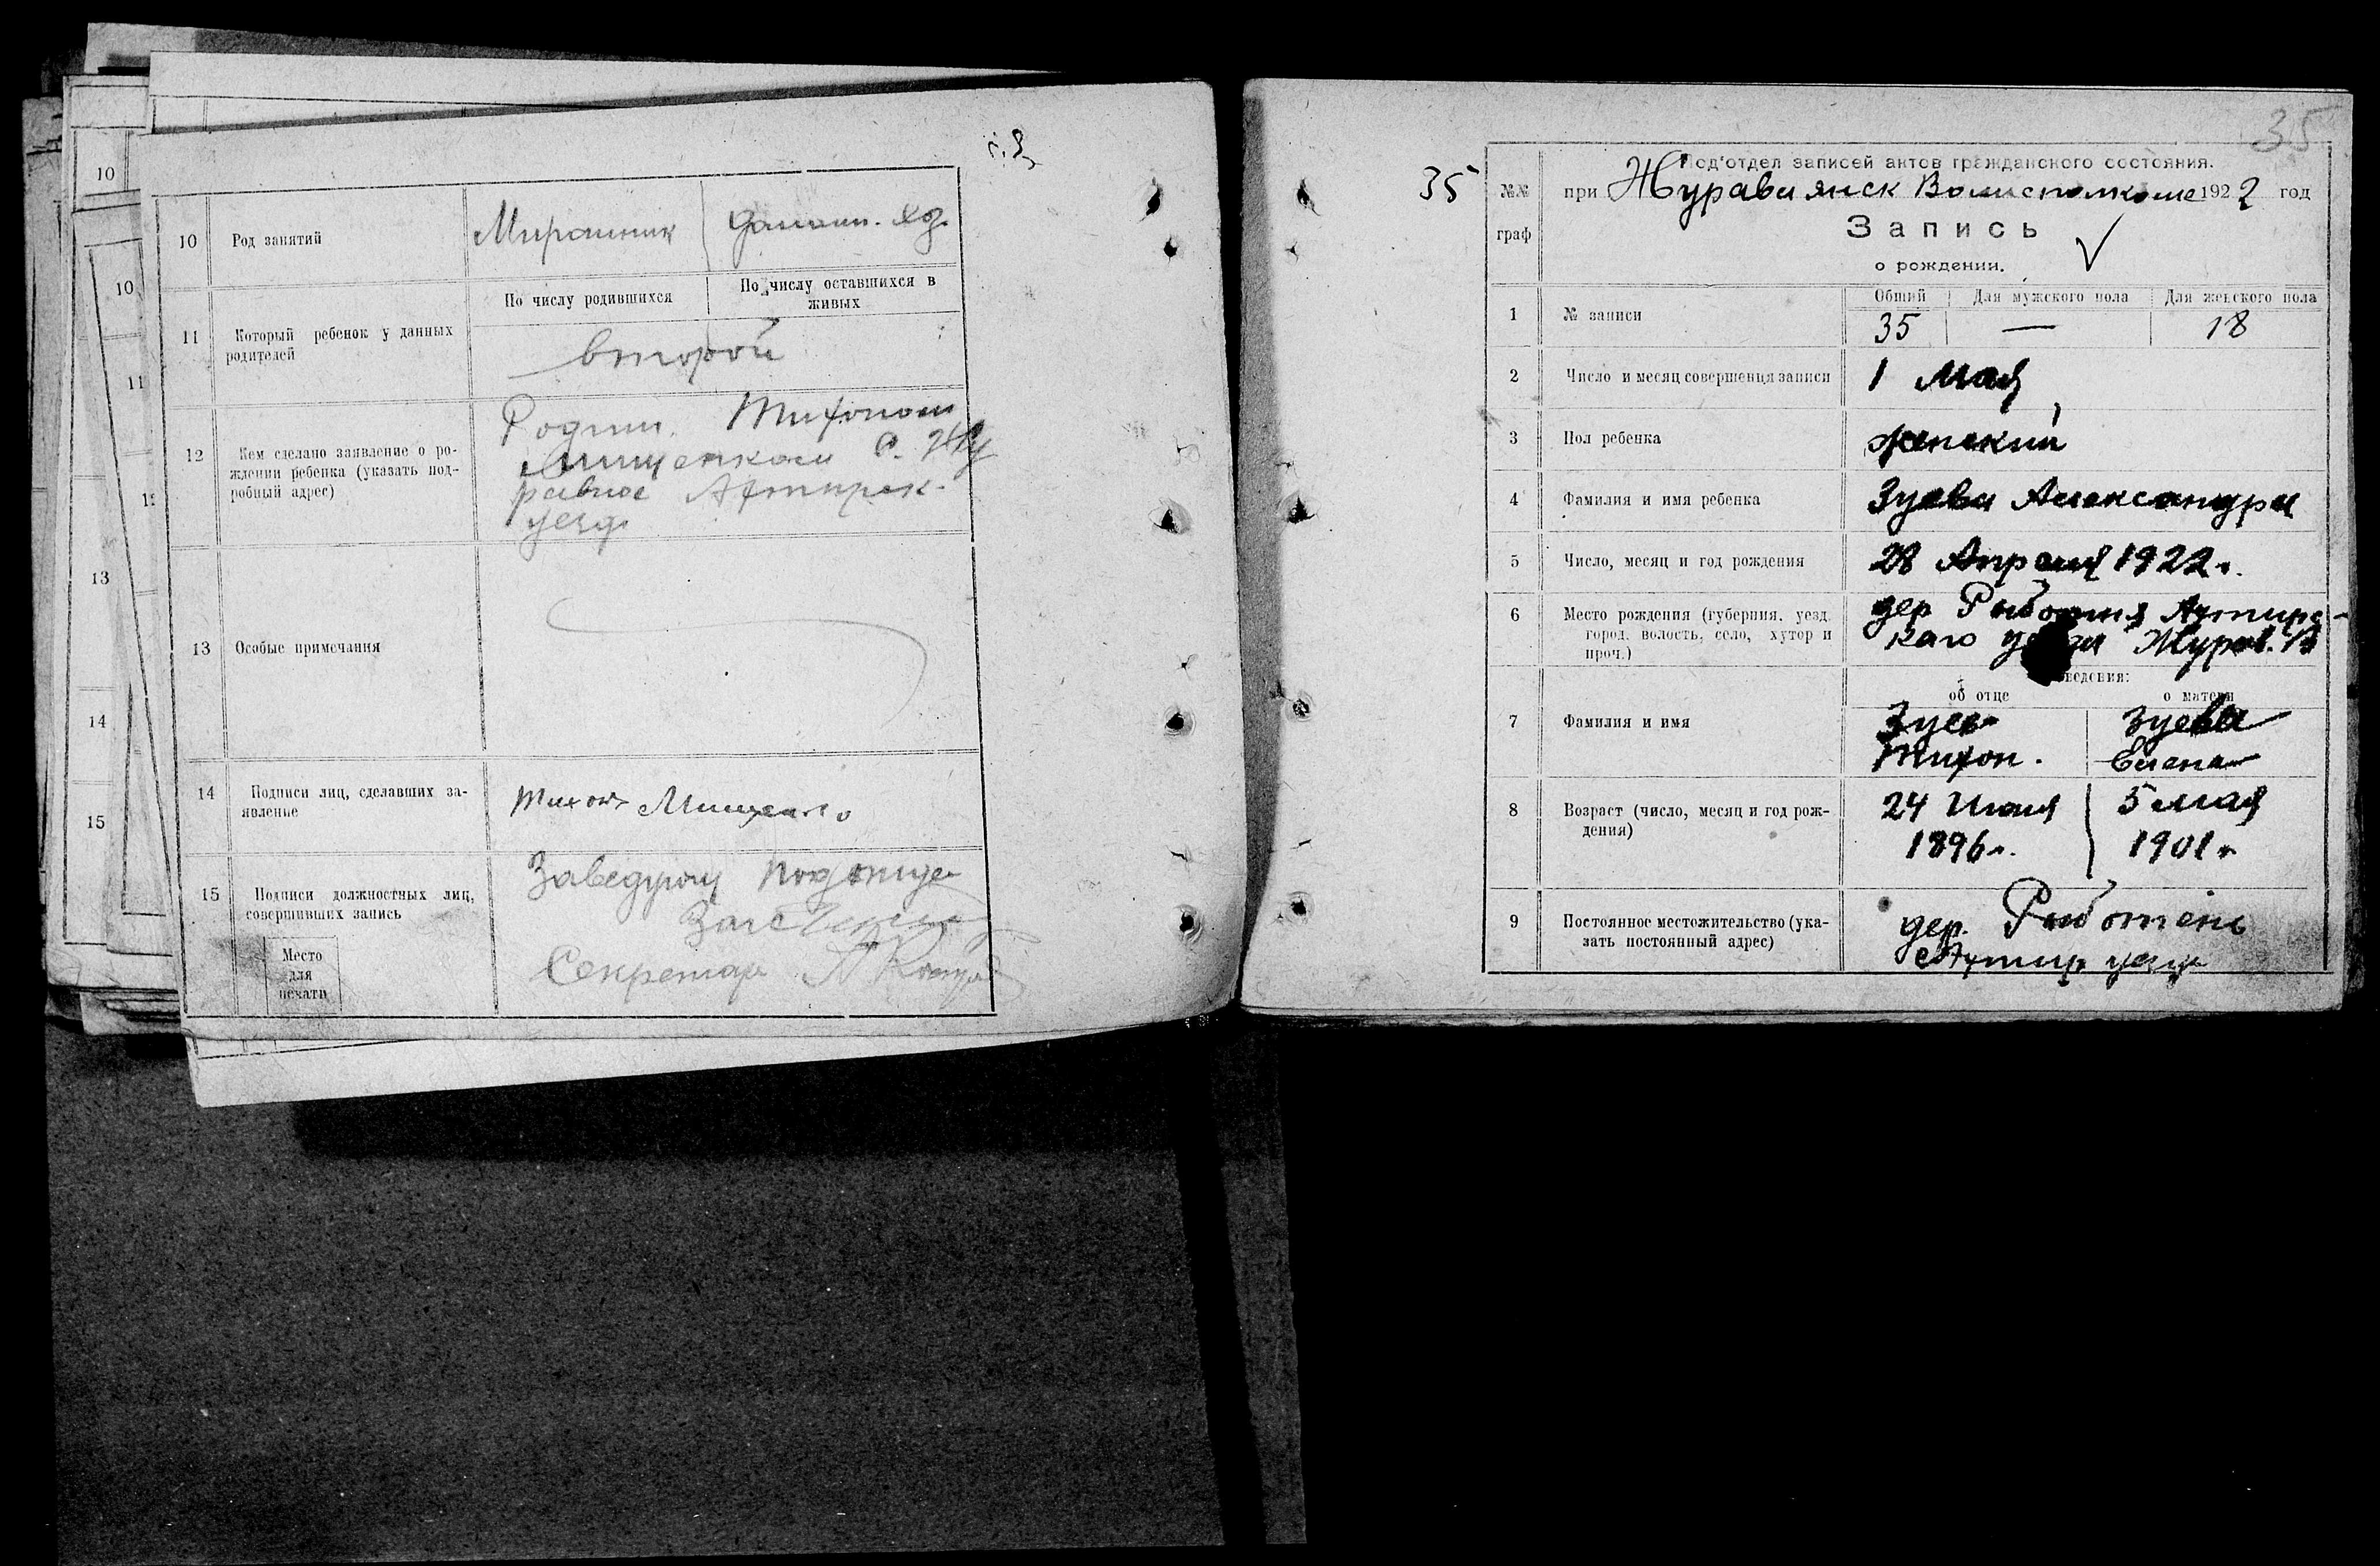 10
10
11
13
14
15
10
Род занятий
домаш. хоз.
По числу родившихся
По числу оставшихся в живых
11
Который ребенок у данных
родителей
второй
12
Кем сделано заявление о ро-
ждении ребенка (указать под-
робный адрес)
Родит. Тихоном
Мищенком с. Жу
равное Ахтырск.
уезд.
13
Особые примечания
14
Подписи лиц, сделавших за-
явление
Тихон Мищенко
15
Подписи должностных лиц,
совершивших запись
Заведующ подотде
Секретарь
Место
для
печати
35
35
Под'отдел записей актов гражданского состояния.
№№
граф
при Журавлянск Волисполкоме 1922 год
Запись
о рождении.
Общий
Для мужского пола
Для женского пола
1
№ записи
35
—
18
2
Число и месяц совершения записи
1 Мая
3
Пол ребенка
женский
4
Фамилия и имя ребенка
Зуева Александра
5
Число, месяц и год рождения
28 Апреля 1922 г.
6
Место рождения (губерния, уезд,
город, волость, село, хутор и
проч.)
дер Рыботня Ахтырс-
каго уезда Журав. В
ведения:
об отце
о матери
7
Фамилия и имя
Зуев
Тихон.
Зуева
Елена
8
Возраст (число, месяц и год рож-
дения)
24 Июля
1896 г.
5 мая
1901 г.
9
Постоянное местожительство (ука-
зать постоянный адрес)
дер. Рыботень
Ахтыр уезда